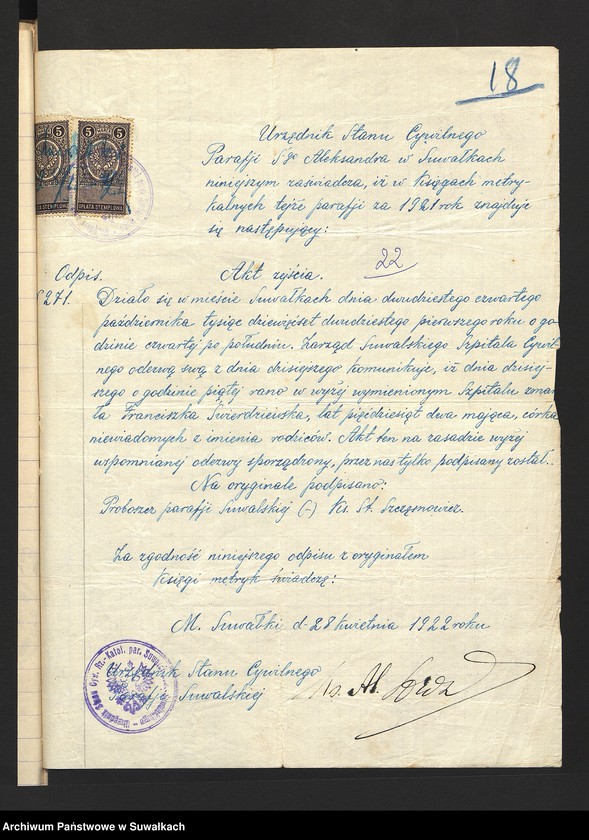 18
Urzędnik Stanu Cywilnego
Parafji Sgo Aleksandra w Suwałkach
niniejszym zaświadcza, iż w Księgach metry-
kalnych tejże parafji za 1921 rok znajduje
się następujący:
22
Odpis.
Akt zejścia.
271.
Działo się w mieście Suwałkach dnia dwudziestego czwartego
października tysiąc dziewięćset dwudziestego pierwszego roku o go-
dzinie czwartej po południu. Zarząd Suwalskiego Szpitala Cywil-
nego odezwą swą z dnia dzisiejszego komunikuje, iż dnia dzisiej-
szego o godzinie piątej rano w wyżej wymienionym Szpitalu zmar-
ła Franciszka Świerdzieńska, lat pięćdziesiąt dwa mająca, córka
niewiadomych z imienia rodziców. Akt ten na zasadzie wyżej
wspomnianej odezwy sporządzony, przez nas tylko podpisany został.
Na oryginale podpisano:
Proboszcz parafji Suwalskiej (-) Ks. St. Szczęsnowicz.
Za zgodność niniejszego odpisu z oryginałem
Księgi metryk świadczę:
M. Suwałki d. 28 kwietnia 1922 roku
Urzędnik Stanu Cywilnego
Parafji Suwalskiej
Ks. Al.
5
5 5
OPŁATA STEMPLOWA
OPŁATA STEMPLOWA
Archiwum Państwowe w Suwałkach